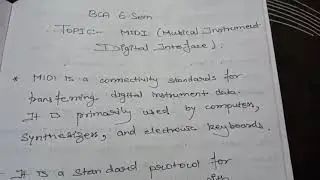 BCA 6 Sem
TOPIC:- MIDI (Musical Instrument
Digital Interface).
* MIDI is a connectivity standards for
transferring digital instrument data.
It is primarily used by computers,
synthesizers, and electronic keyboards.
It is a standard protocol for
with